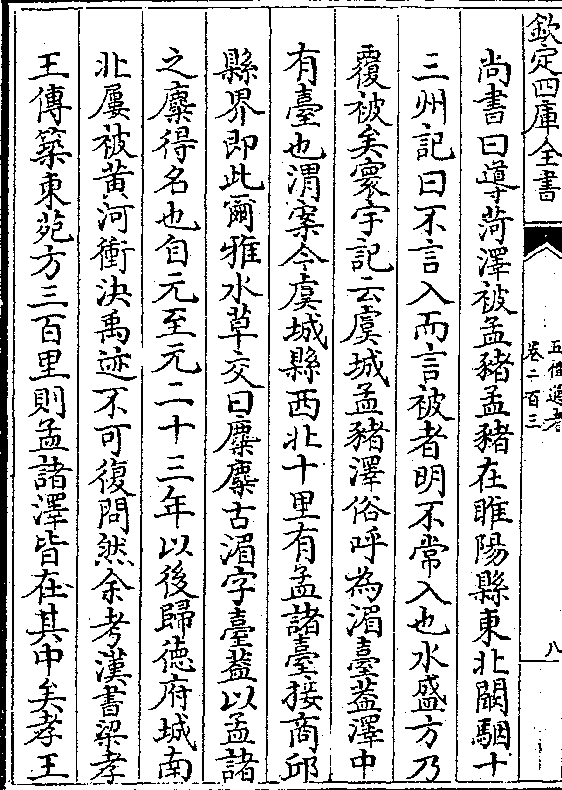 欽定四庫全書
五禮通考
卷二百三
八
尚書曰導菏澤被孟豬孟豬在睢陽縣東北闞駰十
三州記曰不言入而言被者明不常入也水盛方乃
覆被矣寰宇記云虞城孟豬澤俗呼為湄臺葢澤中
有臺也渭案今虞城縣西北十里有孟諸臺接商邱
縣界即此爾雅水草交曰麋麋古湄字臺葢以孟諸
之麋得名也自元至元二十三年以後歸徳府城南
北屢被黄河衝決禹迹不可復問然余考漢書梁孝
王傳築東苑方三百里則孟諸澤皆在其中矣孝王